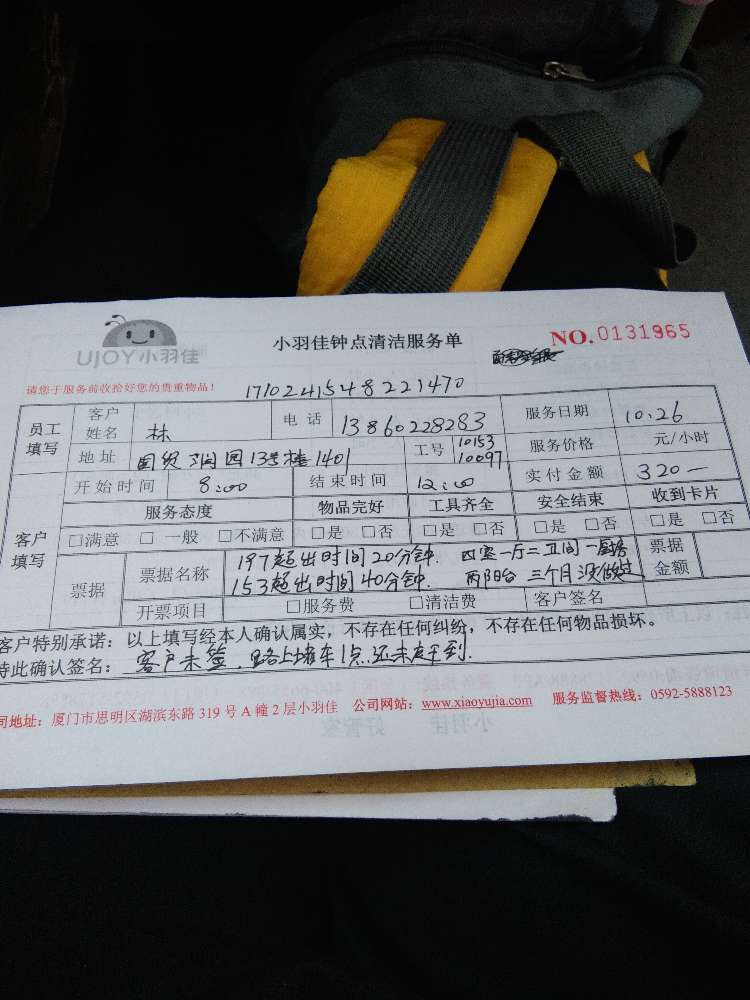 UJOY小羽佳
小羽佳钟点清洁服务单
NO.0131965
请您于服务前收拾好您的贵重物品!
1710241548221470
员工填写 客户姓名 林 电话 13860228283 服务日期 10.26
地址 国贸润园13号楼1401 工号 10153 10097 服务价格 元/小时
客户填写 开始时间 8:00 结束时间 12:00 实付金额 320一
服务态度 物品完好 工具齐全 安全结束 收到卡片
□满意 □一般 □不满意 □是 □否 □是 □否 □是 □否 □是 □否
票据 票据名称 197超出时间20分钟. 四室一厅三卫间一厨房 票据金额
153超出时间40分钟. 两阳台 三个月没做过
开票项目 □服务费 □清洁费 客户签名
客户特别承诺：以上填写经本人确认属实，不存在任何纠纷，不存在任何物品损坏。
特此确认签名：客户未签.路上堵车1点还未到.
司地址：厦门市思明区湖滨东路 319 号 A 幢 2 层小羽佳 公司网站：www.xiaoyujia.com 服务监督热线：0592-5888123